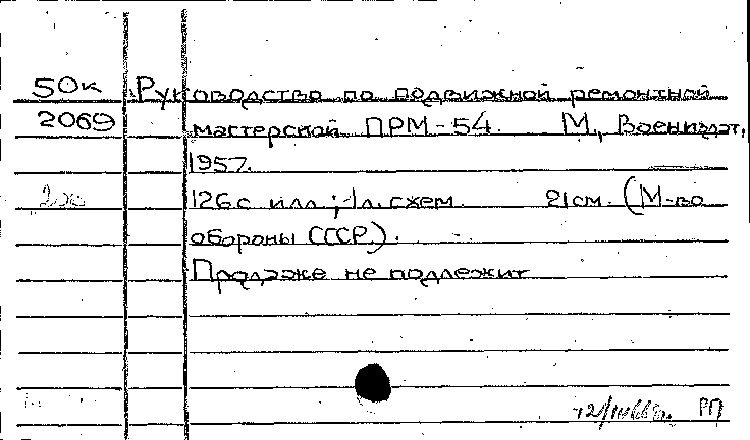 50к Руководство по подвижной ремонтной
2069 мастерской ПРМ-54. М., Воениздат,
1957.
126 с илл.; 1л. схем. 21см. (М-во
обороны СССР.).
Продаже не подлежит
РП